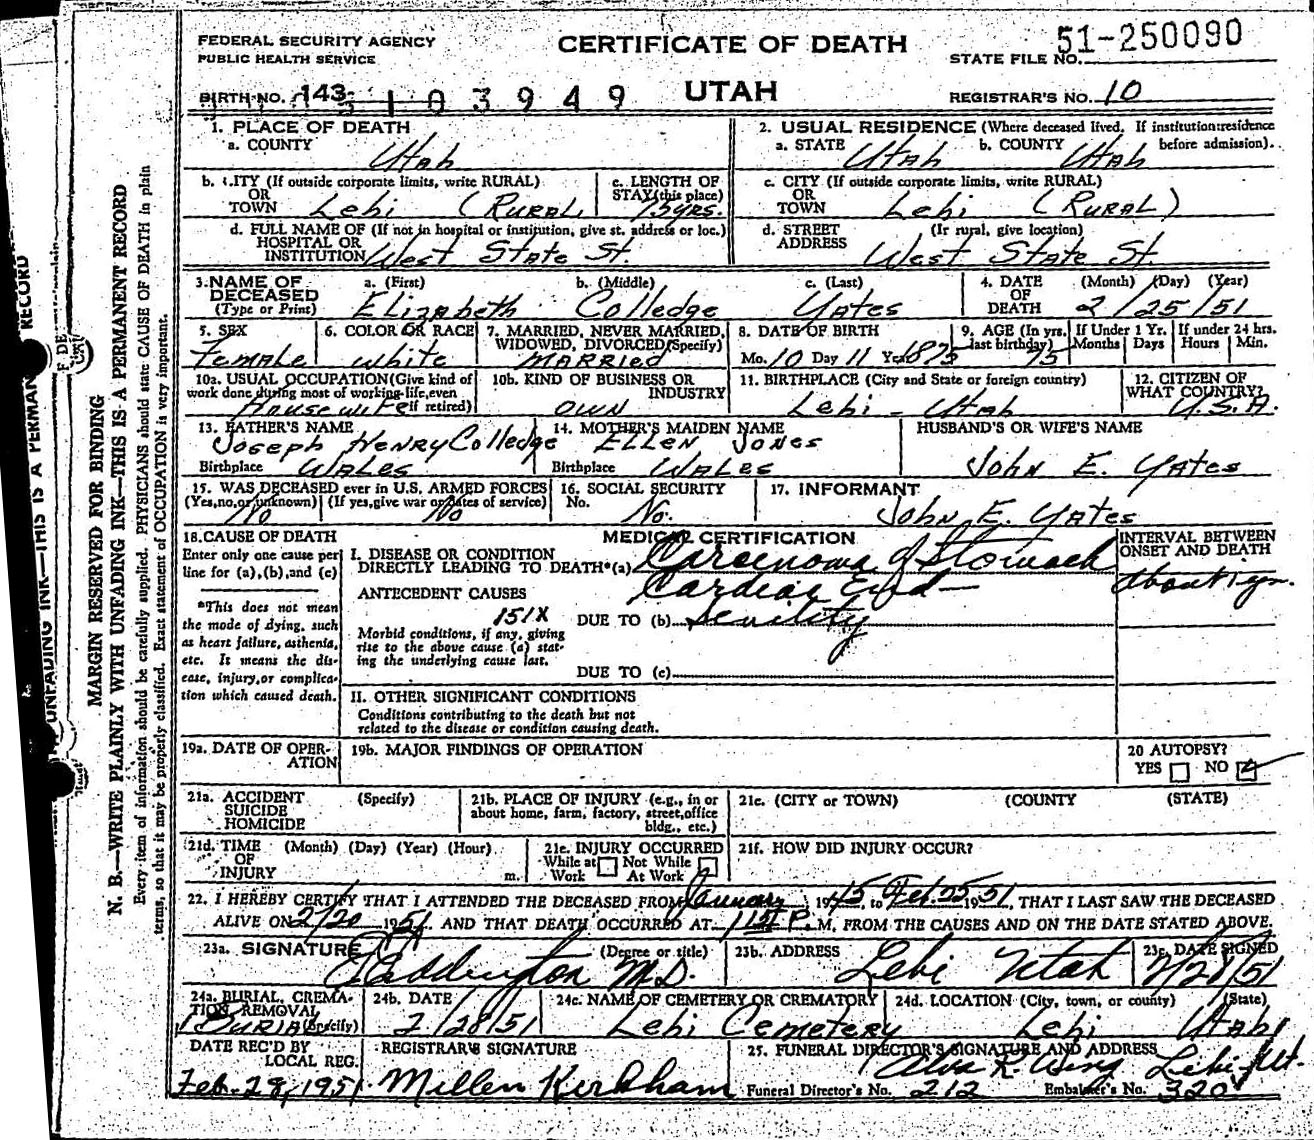 FEDERAL SECURITY AGENCY
PUBLIC HEALTH SERVICE
CERTIFICATE OF DEATH
UTAH
STATE FILE NO. 51-250090
BIRTH NO. 143 5103949
REGISTRAR'S NO. 10
1. PLACE OF DEATH
a. COUNTY Utah
2. USUAL RESIDENCE (Where deceased lived. If institution: residence before admission).
a. STATE Utah b. COUNTY Utah
b. CITY (If outside corporate limits, write RURAL)
OR TOWN Lehi (RURAL)
c. LENGTH OF STAY (this place) 75 yrs.
c. CITY (If outside corporate limits, write RURAL)
OR TOWN Lehi (RURAL)
d. FULL NAME OF (If not in hospital or institution, give st. address or loc.)
HOSPITAL OR INSTITUTION West State St.
d. STREET ADDRESS (If rural, give location)
West State St.
3. NAME OF DECEASED (Type or Print)
a. (First) Elizabeth b. (Middle) Colledge c. (Last) Yates
4. DATE OF DEATH (Month) (Day) (Year) 2/25/51
5. SEX Female
6. COLOR OR RACE white
7. MARRIED, NEVER MARRIED, WIDOWED, DIVORCED (Specify) MARRIED
8. DATE OF BIRTH
Mo. 10 Day 11 Year 1875
9. AGE (In yrs. last birthday) 75
If Under 1 Yr. Months Days
If under 24 hrs. Hours Min.
10a. USUAL OCCUPATION (Give kind of work done during most of working life, even if retired) Housewife
10b. KIND OF BUSINESS OR INDUSTRY own
11. BIRTHPLACE (City and State or foreign country) Lehi - Utah
12. CITIZEN OF WHAT COUNTRY? U.S.A.
13. FATHER'S NAME Joseph Henry Colledge
Birthplace WALES
14. MOTHER'S MAIDEN NAME ELLEN Jones
Birthplace WALES
HUSBAND'S OR WIFE'S NAME
John E. Yates
15. WAS DECEASED ever in U.S. ARMED FORCES
(Yes, no, or unknown) No (If yes, give war or dates of service) No
16. SOCIAL SECURITY No. No.
17. INFORMANT
John E. Yates
18. CAUSE OF DEATH
Enter only one cause per line for (a), (b), and (c)
*This does not mean the mode of dying, such as heart failure, asthenia, etc. It means the disease, injury, or complication which caused death.
MEDICAL CERTIFICATION
I. DISEASE OR CONDITION DIRECTLY LEADING TO DEATH*(a) Carcinoma of Stomach
Cardiac End
ANTECEDENT CAUSES
151X
DUE TO (b) Senility
Morbid conditions, if any, giving rise to the above cause (a) stating the underlying cause last.
DUE TO (c)
INTERVAL BETWEEN ONSET AND DEATH
about 1 yr.
II. OTHER SIGNIFICANT CONDITIONS
Conditions contributing to the death but not related to the disease or condition causing death.
19a. DATE OF OPERATION
19b. MAJOR FINDINGS OF OPERATION
20 AUTOPSY?
YES NO
21a. ACCIDENT SUICIDE HOMICIDE (Specify)
21b. PLACE OF INJURY (e.g., in or about home, farm, factory, street, office bldg., etc.)
21c. (CITY or TOWN) (COUNTY) (STATE)
21d. TIME OF INJURY (Month) (Day) (Year) (Hour) m.
21e. INJURY OCCURRED
While at Work Not While At Work
21f. HOW DID INJURY OCCUR?
22. I HEREBY CERTIFY THAT I ATTENDED THE DECEASED FROM January 1945, to Feb. 25 1951, THAT I LAST SAW THE DECEASED
ALIVE ON 2/20 1951 AND THAT DEATH OCCURRED AT P. M. FROM THE CAUSES AND ON THE DATE STATED ABOVE.
23a. SIGNATURE (Degree or title) Eddington M.D.
23b. ADDRESS Lehi Utah
23c. DATE SIGNED 2/28/51
24a. BURIAL, CREMATION, REMOVAL (Specify) BURIAL
24b. DATE 2/28/51
24c. NAME OF CEMETERY OR CREMATORY Lehi Cemetery
24d. LOCATION (City, town, or county) (State) Lehi Utah
DATE REC'D BY LOCAL REG. Feb. 28, 1951
REGISTRAR'S SIGNATURE Millen Kirkham
25. FUNERAL DIRECTOR'S SIGNATURE AND ADDRESS Alva R. Wing Lehi, Ut.
Funeral Director's No. 212 Embalmer's No. 320
MARGIN RESERVED FOR BINDING
N. B.—WRITE PLAINLY WITH UNFADING INK—THIS IS A PERMANENT RECORD
Every item of information should be carefully supplied. PHYSICIANS should state CAUSE OF DEATH in plain
terms, so that it may be properly classified. Exact statement of OCCUPATION is very important.
UNFADING INK—THIS IS A PERMANENT RECORD